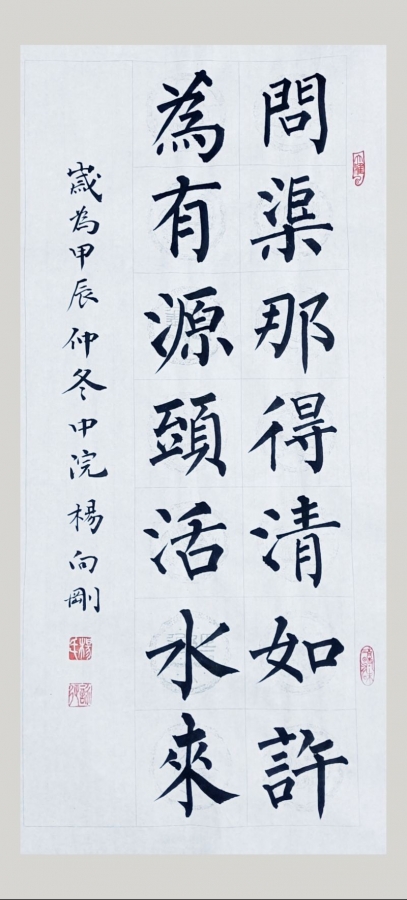 問渠那得清如許
為有源頭活水來
歲為甲辰仲冬中浣楊向剛